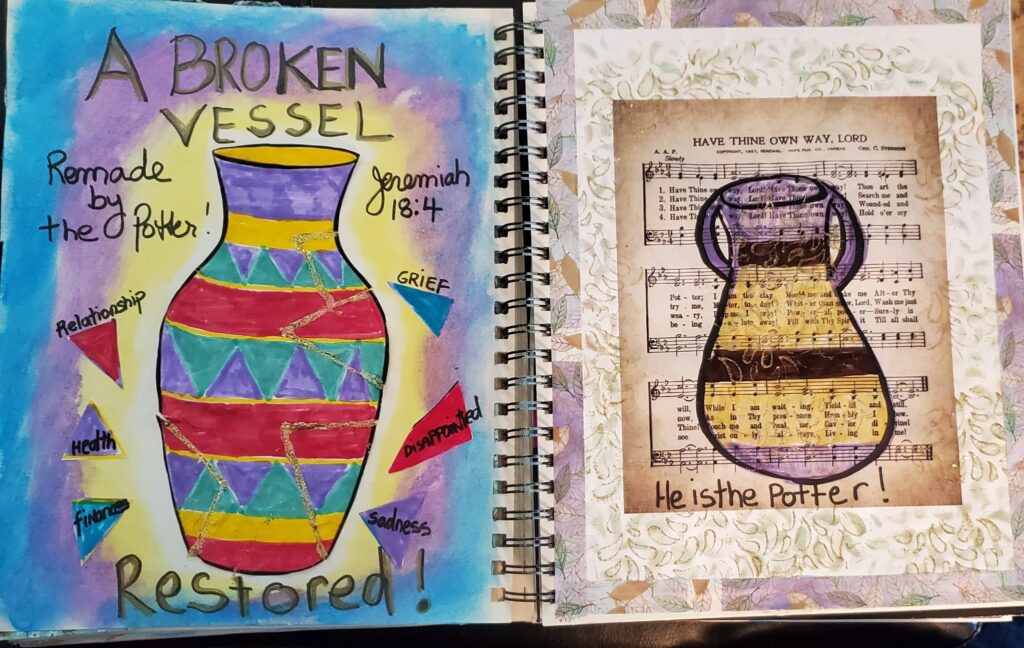 A BROKEN
VESSEL
Remade
by
the Potter!
Jeremiah
18:4
GRIEF
Relationship
DISAPPOINTED
Health
finances
sadness
Restored!
HAVE THINE OWN WAY, LORD
A. A. P.
COPYRIGHT, 1907, RENEWAL. HOPE PUB. CO., OWNERS
GEO. C. STEBBINS
Slowly
1. Have Thine way, Lord! Have Thine own Thou art the
2. Have Thine way, Lord! Have Thine own Search me and
3. Have Thine way, Lord! Have Thine own Wound-ed and
4. Have Thine way, Lord! Have Thine own Hold o'er my
Pot - ter; the clay me Aft - er Thy
try me, to - day! Whit - er than Lord, Wash me just
wea - ry, me, I pray! Pow - er Sure-ly is
be - ing Fill with Thy Till all shall
will, While I am wait - ing, Yield - and still.
now, As in Thy pres - ence Hum - bly I bow.
Thine! Touch me and heal me, Sav - ior di - vine!
see Christ on - ly, al - ways, Liv - ing in me!
He is the Potter!